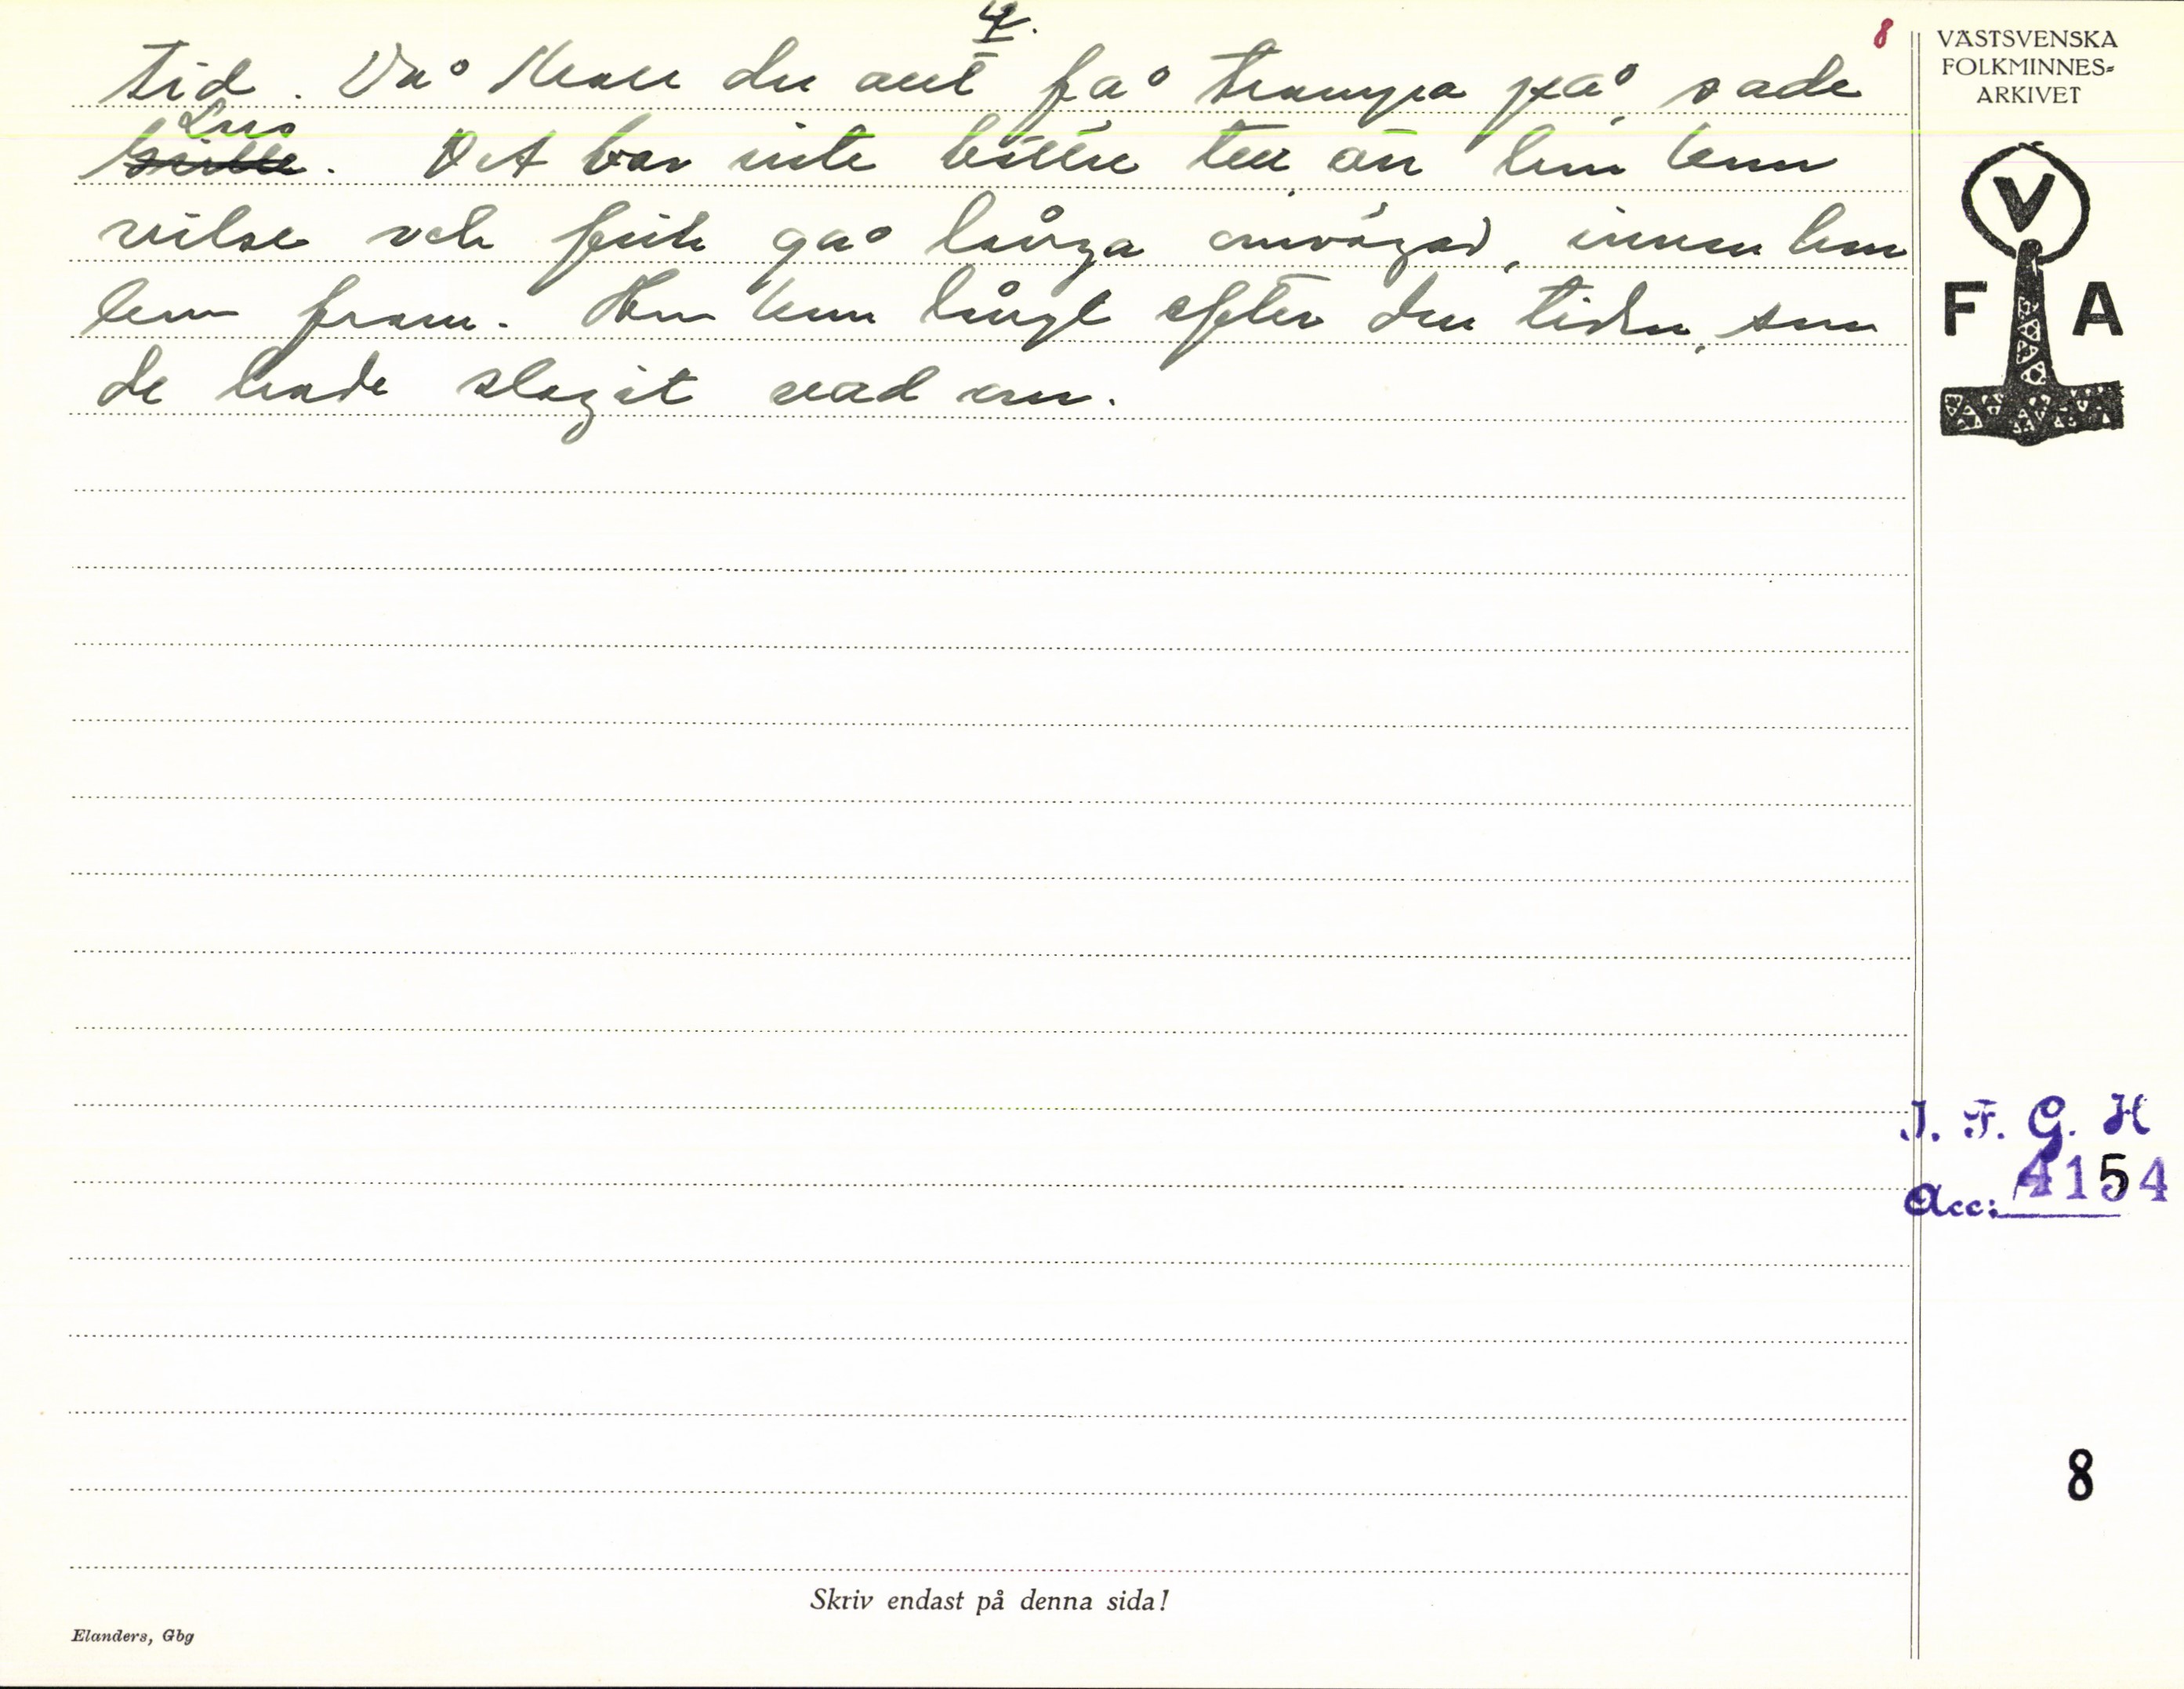 4.
8
tid. Då skall du allt få trampa på, sade
Lus
. Det bar inte bättre till, än hon kom
vilse och fick gå långa omvägar, innan hon
kom fram. Hon kom långt efter den tiden, som
de hade slagit vad om.
VÄSTSVENSKA
FOLKMINNES=
ARKIVET
V
F A
I. F. G. H
Acc: 4154
8
Skriv endast på denna sida!
Elanders, Gbg